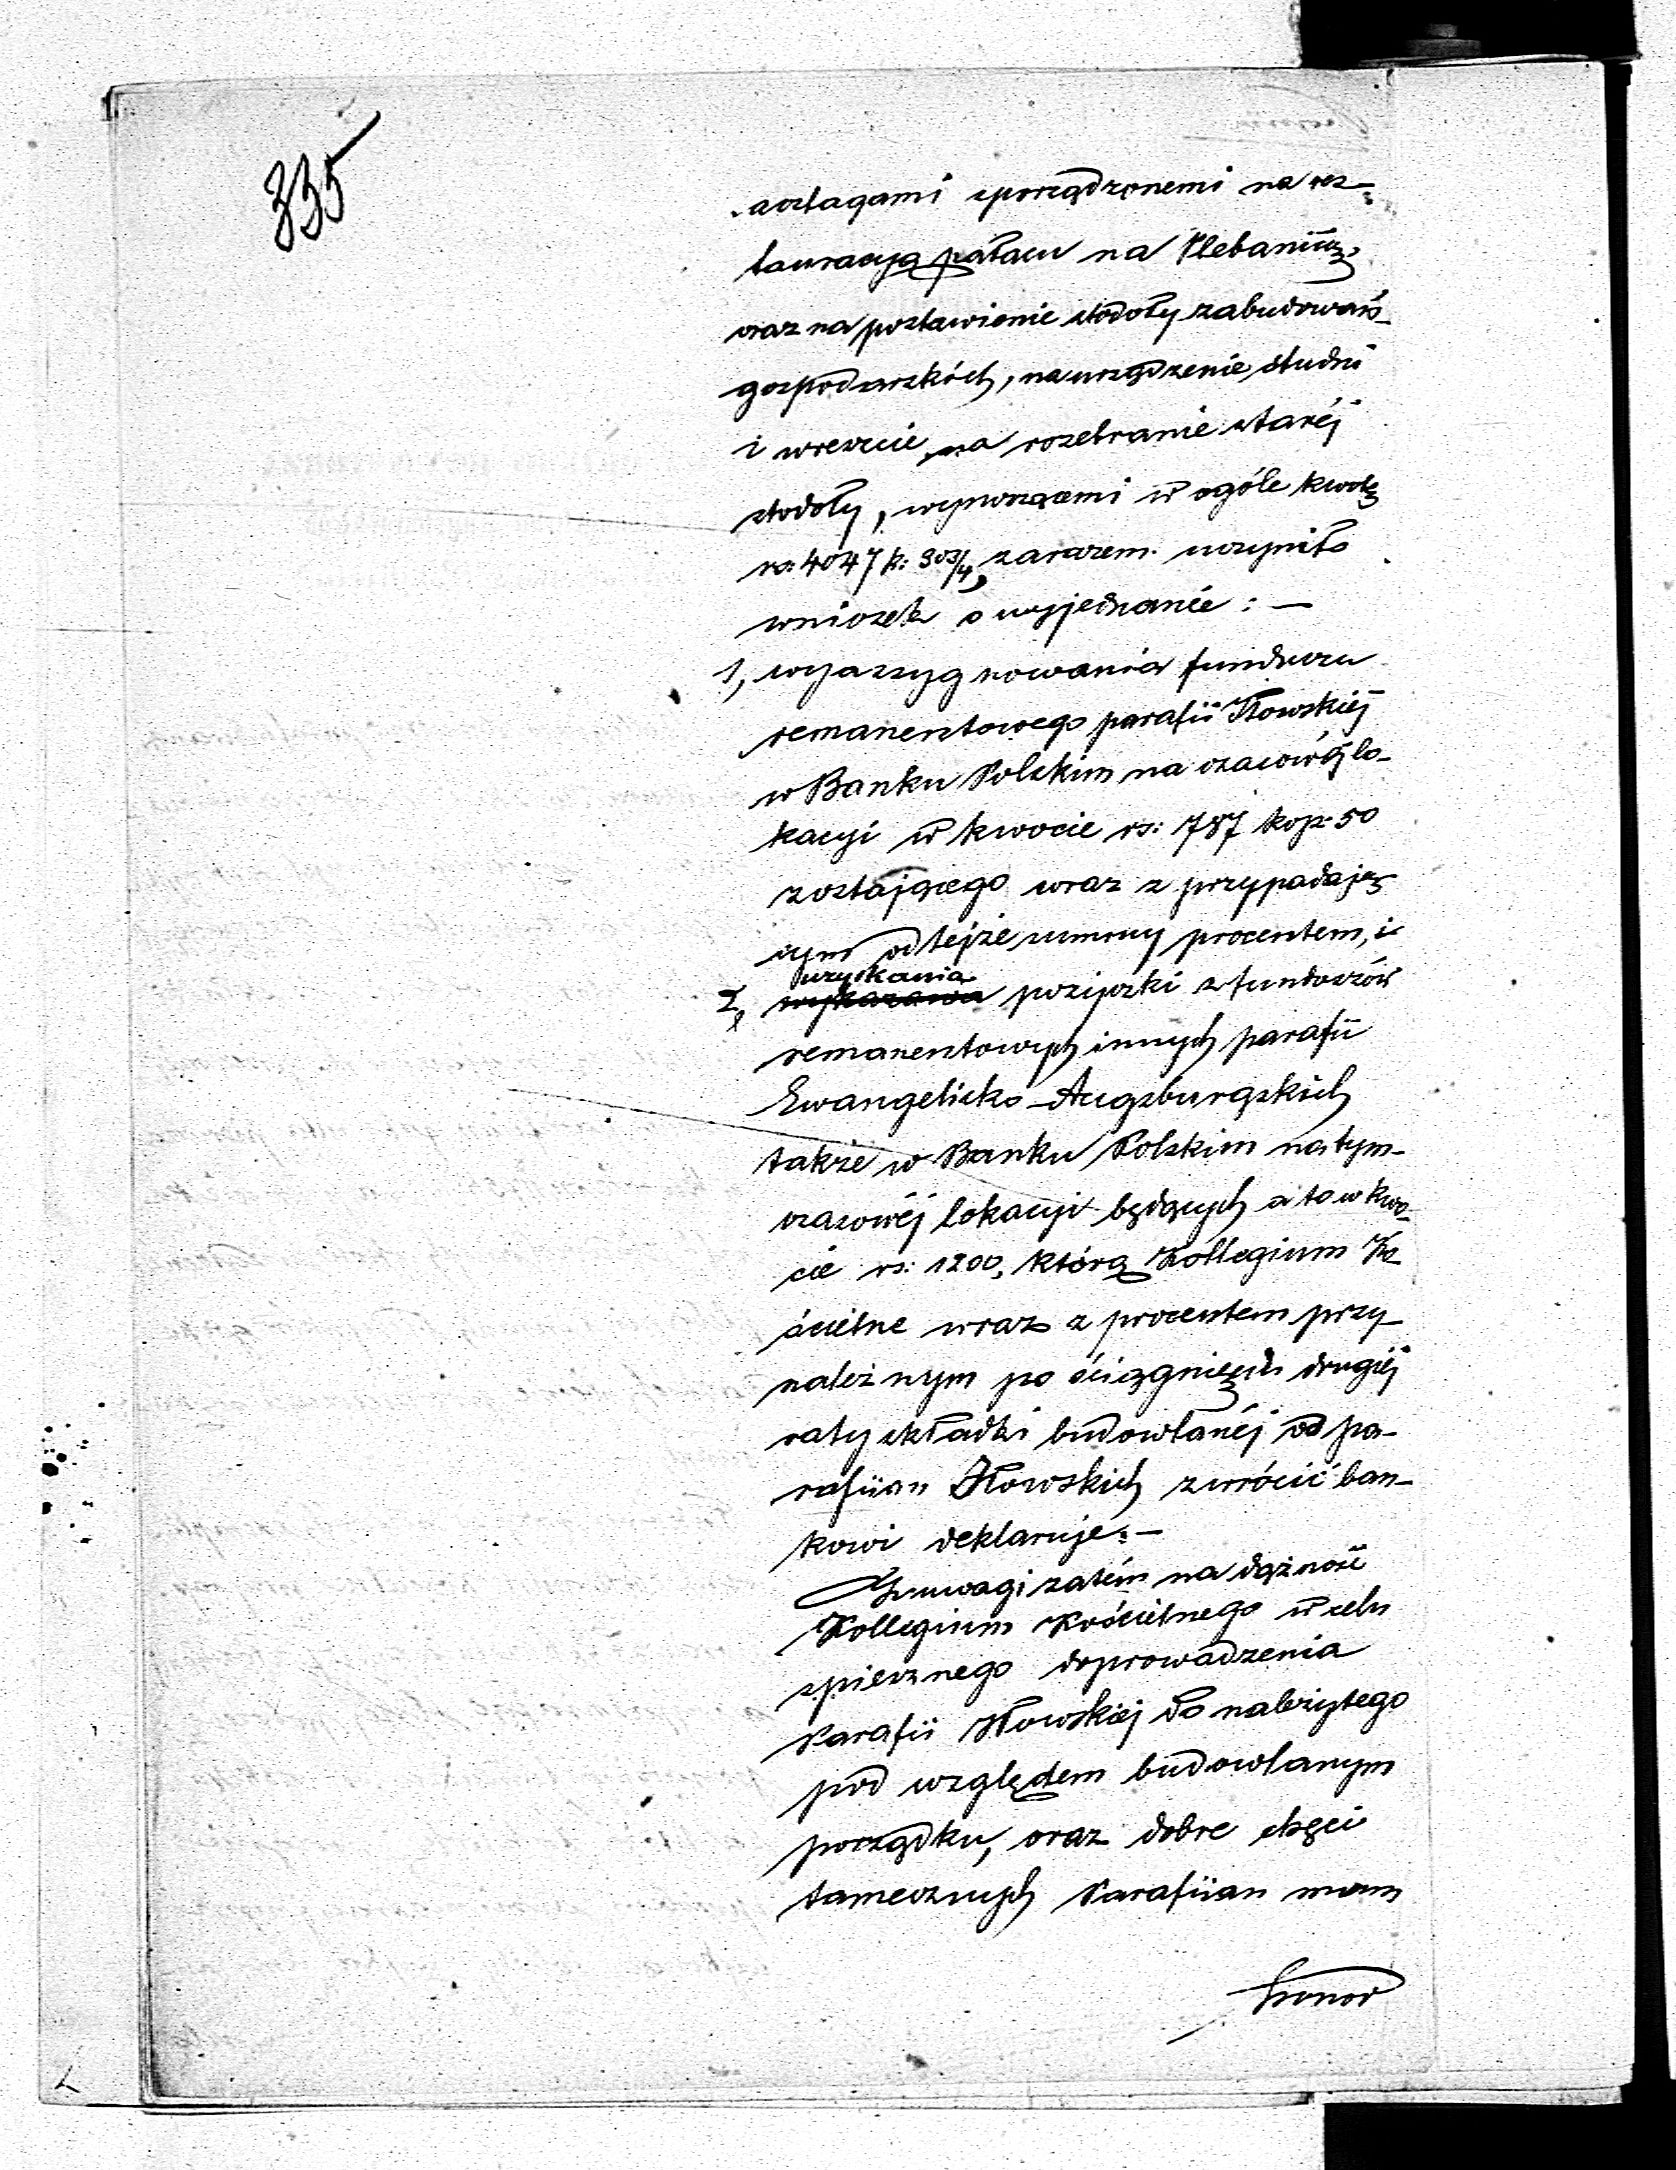 335
aoztagami sporządzonemi na res-
tauracyą pałacu na Plebaniią,
oraz na postawienie stodoły zabudowań
gospodarskich, na urządzenie studni
i wreszcie na rozebranie staréj
stodoły, wynoszącemi w ogóle kwotę
rs: 4047 k: 903/4, zarazem uczyniło
wniosek o wyjednanie: —
1, wyassygnowania funduszu
remanentowego parafii Iłowskiéj
w Banku Polskim na czasowéj lo-
kacyi w kwocie rs: 787 kop: 50
zostającego wraz z przypadają-
cym od tejże summy procentem, i
uzyskania
2, wykazania pożyczki z funduszów
remanentowych innych parafii
Ewangelicko-Augsburgskich
także w Banku Polskim na tym-
czasowéj lokacyi będących a to w kwo-
cie rs: 1200, którą Kollegium Ko-
ścielne wraz z procentem przy-
należnym po ściągnięciu drugiéj
raty składki budowlanéj od pa-
rafiian Iłowskich zwrócić ban-
kowi deklaruje. —
Z uwagi zatém na dążność
Kollegium Kościelnego w celu
spiesznego doprowadzenia
Parafii Iłowskiéj do należytego
pod względem budowlanym
porządku, oraz dobre chęci
tamecznych Parafiian mam
honor